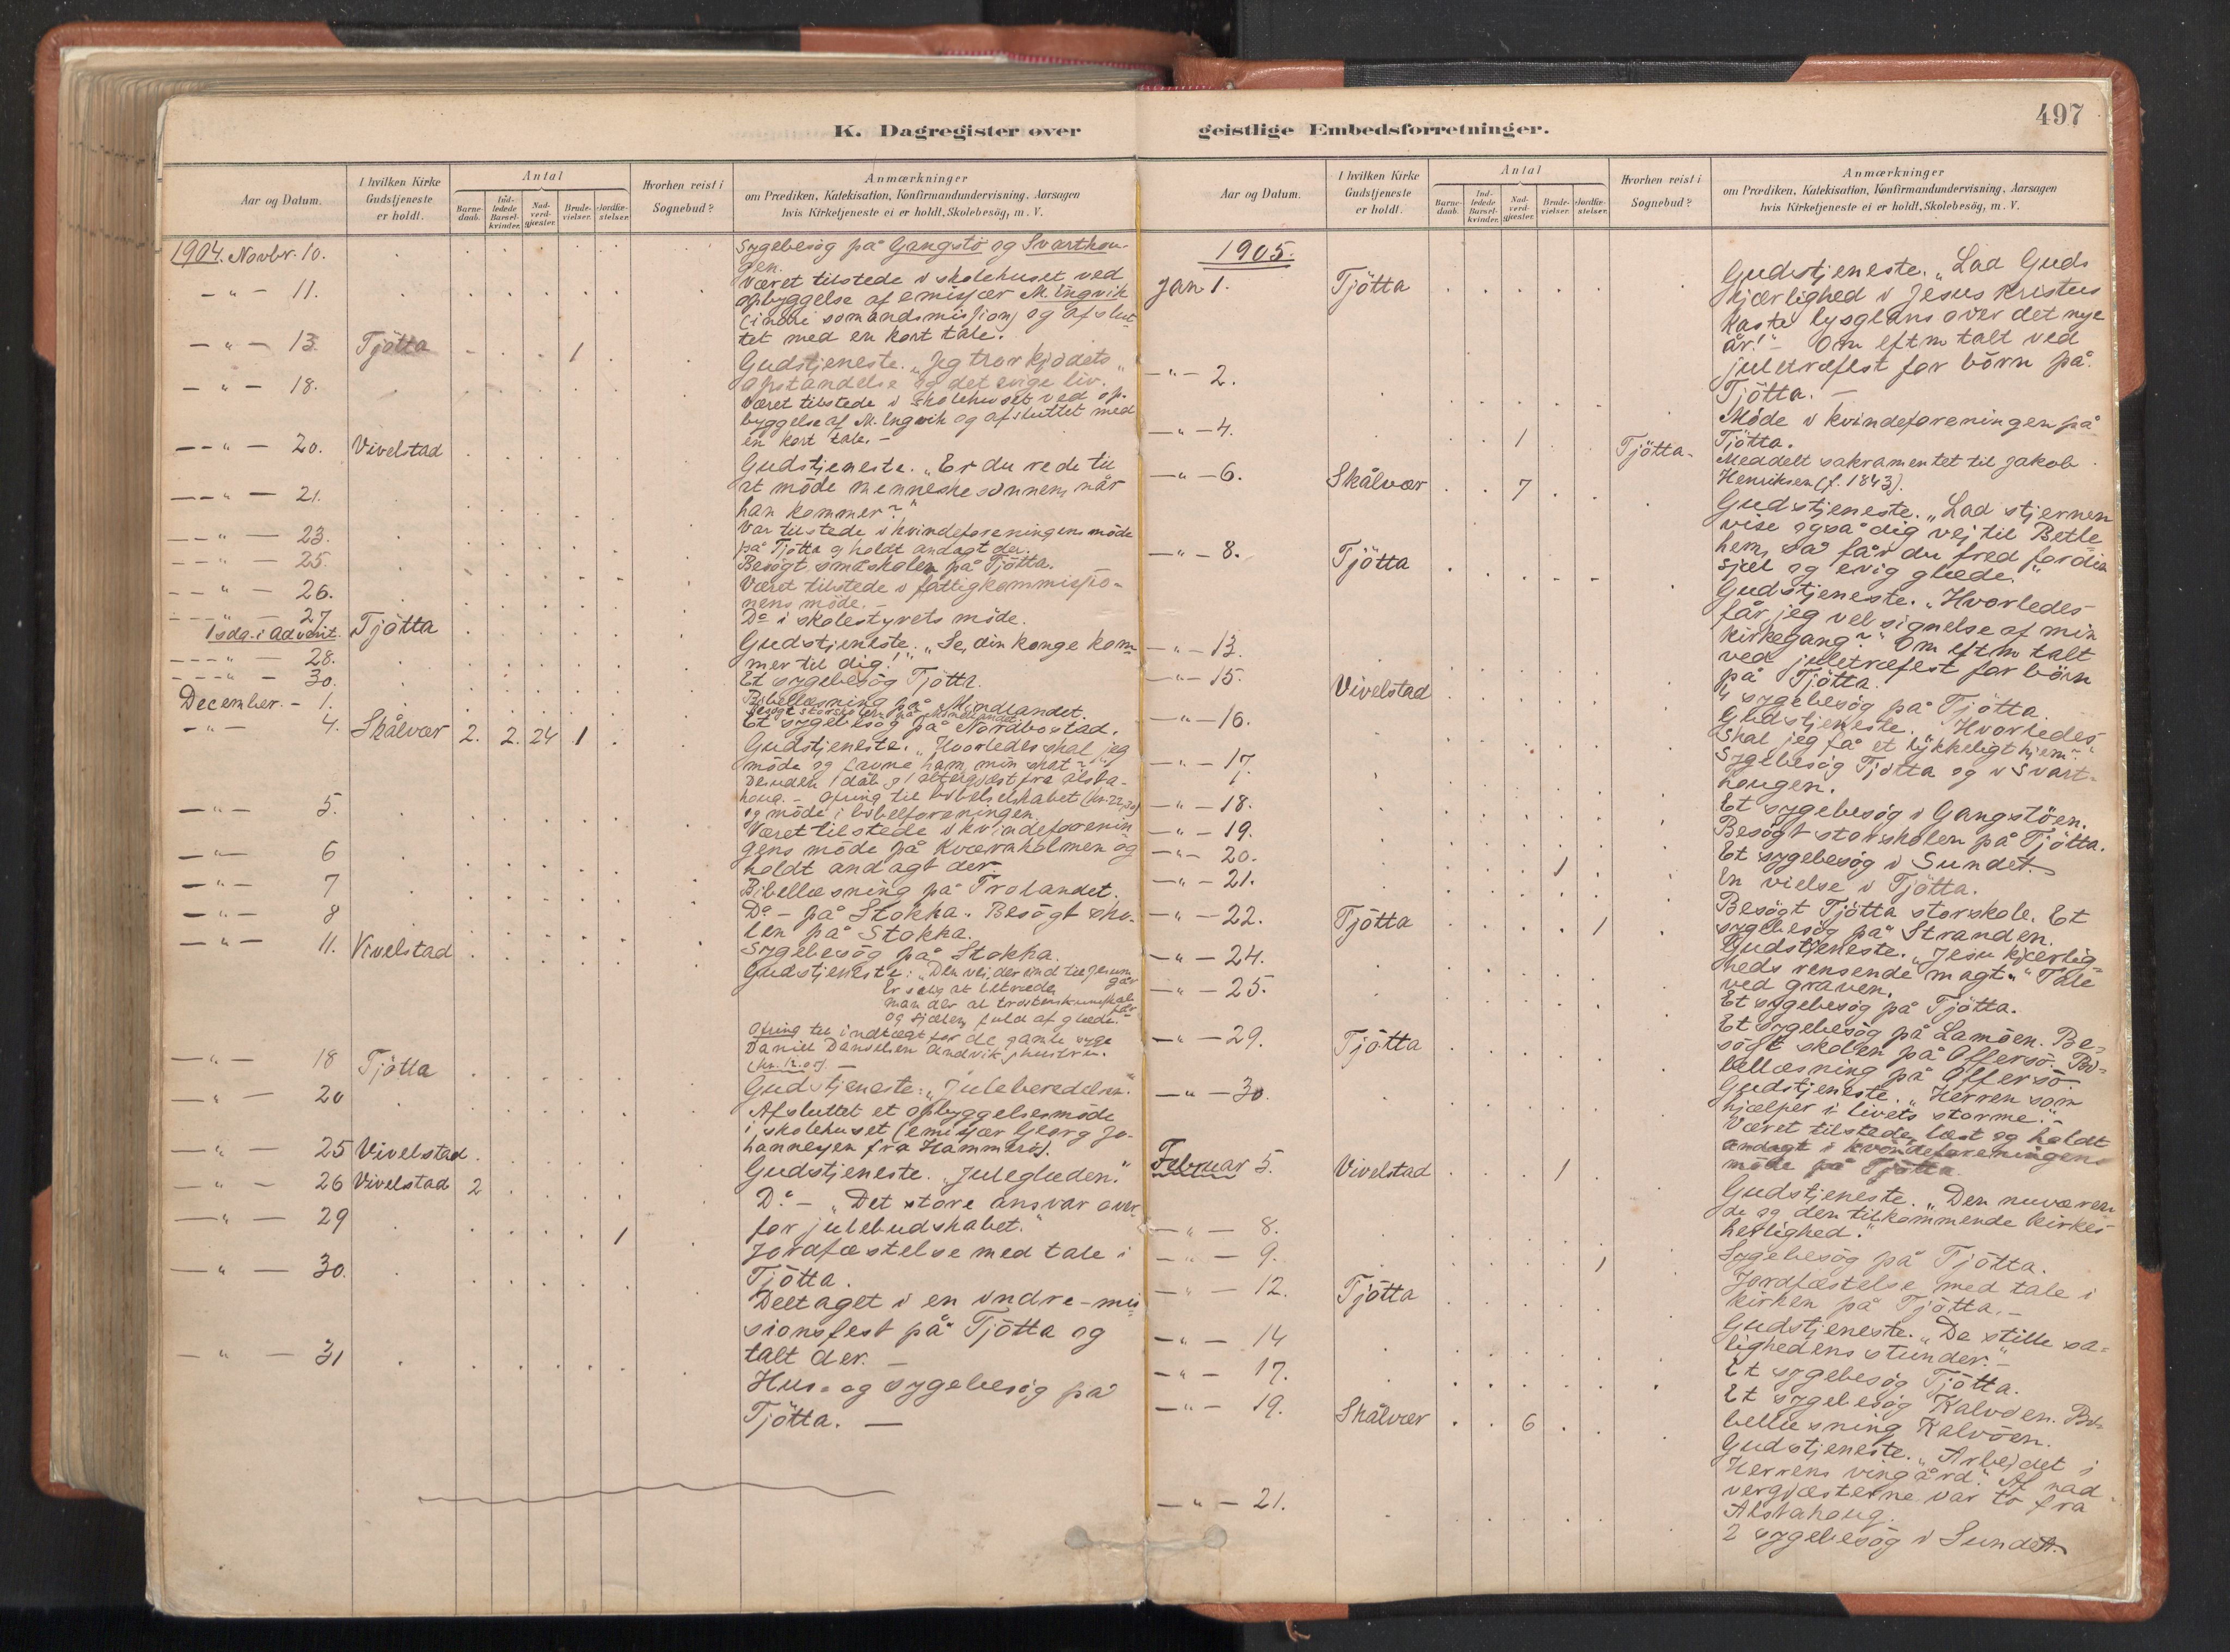 K. Dagregister over
Aar og Datum.
I hvilken Kirke
Gudstjeneste
er holdt.
Antal
Barne-
daab.
Ind-
ledede
Barsel-
kvinder.
Nad-
verd-
gjæster.
Brude-
vielser.
Jordfæ-
stelser.
Hvorhen reist i
Sognebud?
Anmærkninger
om Prædiken, Katekisation, Konfirmandundervisning, Aarsagen
hvis Kirketjeneste ei er holdt, Skolebesög, m. V.
1904. Novbr. 10.
Sygebesög på Gangstö og Svarthou-
gen.
— " — 11.
Været tilstede i skolehuset ved
opbyggelse af emisjær M. Ingvik
(indre somandsmission) og afslut-
tet med en kort tale.
— " — 13. Tjötta 1
Gudstjeneste. „Jeg tror kjödets
opstandelse og det evige liv."
— " — 18.
Været tilstede i skolehuset ved op-
byggelse af M. Ingvik og afsluttet med
en kort tale. —
— " — 20. Vivelstad
Gudstjeneste. „Er du rede til
at möde menneskesönnen, når
han kommer?"
— " — 21.
Var tilstede i kvindeforeningens möde
på Tjötta og holdt andagt der.
— " — 23.
Besögt småskolen på Tjötta.
— " — 25.
Været tilstede i fattigkommissio-
nens möde. —
— " — 26.
Do i skolestyrets möde.
— " — 27.
1 sdg. i Advent. Tjötta
Gudstjeneste. „Se, din konge kom-
mer til dig!"
— " — 28.
Et sygebesög Tjötta.
— " — 30.
Bibellæsning på Mindlandet.
Besögt storskolen på Mindlandet.
December. - 1.
Et sygebesög på Nordbostad.
— " — 4. Skålvær 2. 2. 24 1
Gudstjeneste. „Hvorledes skal jeg
möde og favne ham, min skat?"
Desuden 1 dåb og 1 altergjæst fra Alsta-
houg. - Ofring til bibelselskabet (kr. 22,30)
og möde i bibelforeningen.
— " — 5.
Været tilstede i kvindeforenin-
gens möde på Kværnholmen og
holdt andagt der.
— " — 6
Bibellæsning på Trolandet.
— " — 7
Do - på Stokka. Besögt sko-
len på Stokka.
— " — 8
Sygebesög på Stokka.
— " — 11. Vivelstad
Gudstjeneste: „Den vei, der ind til Jesum går
Er salig at betræde,
man der al tröstens kundskab får
og sjælen fuld af glæde."
Ofring til indtægt for de gamle syge
Daniel Danielsen Andvik, hustru.
(kr. 12.05). —
— " — 18 Tjötta
Gudstjeneste: „Juleberedelsen."
— " — 20
Afsluttet et opbyggelsesmöde
i skolehuset (emisjær Georg Jo-
hannesen fra Hammerö).
— " — 25 Vivelstad
Gudstjeneste. „Juleglæden."
— " — 26 Vivelstad 2
Do - „Det store ansvar over-
for julebudskabet."
— " — 29 1
Jordfæstelse med tale i
Tjötta.
— " — 30.
Deltaget i en indre-mis-
sionsfest på Tjötta og
talt der. —
— " — 31
Hus- og sygebesög på
Tjötta. —
497
geistlige Embedsforretninger.
Aar og Datum.
I hvilken Kirke
Gudstjeneste
er holdt.
Antal
Barne-
daab.
Ind-
ledede
Barsel-
kvinder.
Nad-
verd-
gjæster.
Brude-
vielser.
Jordfæ-
stelser.
Hvorhen reist i
Sognebud?
Anmærkninger
om Prædiken, Katekisation, Konfirmandundervisning, Aarsagen
hvis Kirketjeneste ei er holdt, Skolebesög, m. V.
1905.
Jan 1. Tjötta
Gudstjeneste. „Lad Guds
kjærlighed i Jesus Kristus
kaste lysglans over det nye
år!" - Om eftm talt ved
juletræfest for börn på
Tjötta. —
— " — 2.
Möde i kvindeforeningen på
Tjötta.
— " — 4. 1 Tjötta.
Meddelt sakramentet til Jakob
Henriksen (f. 1843).
— " — 6. Skålvær 7
Gudstjeneste. „Lad stjernen
vise også dig vej til Betle-
hem, så får du fred for din
sjæl og evig glæde."
— " — 8. Tjötta
Gudstjeneste. „Hvorledes
får jeg velsignelse af min
kirkegang?" Om eftm talt
ved juletræfest for börn
på Tjötta.
— " — 13.
4 sygebesög på Tjötta.
— " — 15. Vivelstad
Gudstjeneste. „Hvorledes
skal jeg få et lykkeligt hjem?"
— " — 16.
Sygebesög Tjötta og i Svart-
hougen.
— " — 17.
Et sygebesög i Gangstöen.
— " — 18.
Besögt storskolen på Tjötta.
— " — 19.
Et sygebesög i Sundet.
— " — 20. 1
En vielse i Tjötta.
— " — 21.
Besögt Tjötta storskole. Et
sygebesög på Stranden.
— " — 22. Tjötta 1
Gudstjeneste. „Jesu kjærlig-
heds rensende magt." Tale
ved graven.
— " — 24.
Et sygebesög på Tjötta.
— " — 25.
Et sygebesög på Lamöen. Be-
sögt skolen på Offersö. Bi-
bellæsning på Offersö.
— " — 29. Tjötta
Gudstjeneste. „Herren som
hjælper i livets storme."
— " — 30.
Været tilstede, læst og holdt
andagt i kvindeforeningens
möde på Tjötta.
Februar 5. Vivelstad 1
Gudstjeneste. „Den nuværen-
de og den tilkommende kirkes
herlighed."
— " — 8.
Sygebesög på Tjötta.
— " — 9. 1
Jordfæstelse med tale i
kirken på Tjötta. —
— " — 12. Tjötta
Gudstjeneste. „De stille sa-
lighedens stunder." —
— " — 14
Et sygebesög Tjötta.
— " — 17.
Et sygebesög Kalvöen. Bi-
bellæsning Kalvöen.
— " — 19. Skålvær 6
Gudstjeneste. „Arbejdet i
Herrens vingård." Af nad-
vergjæsterne var to fra
Alstahoug.
— " — 21.
2 sygebesög i Sundet.